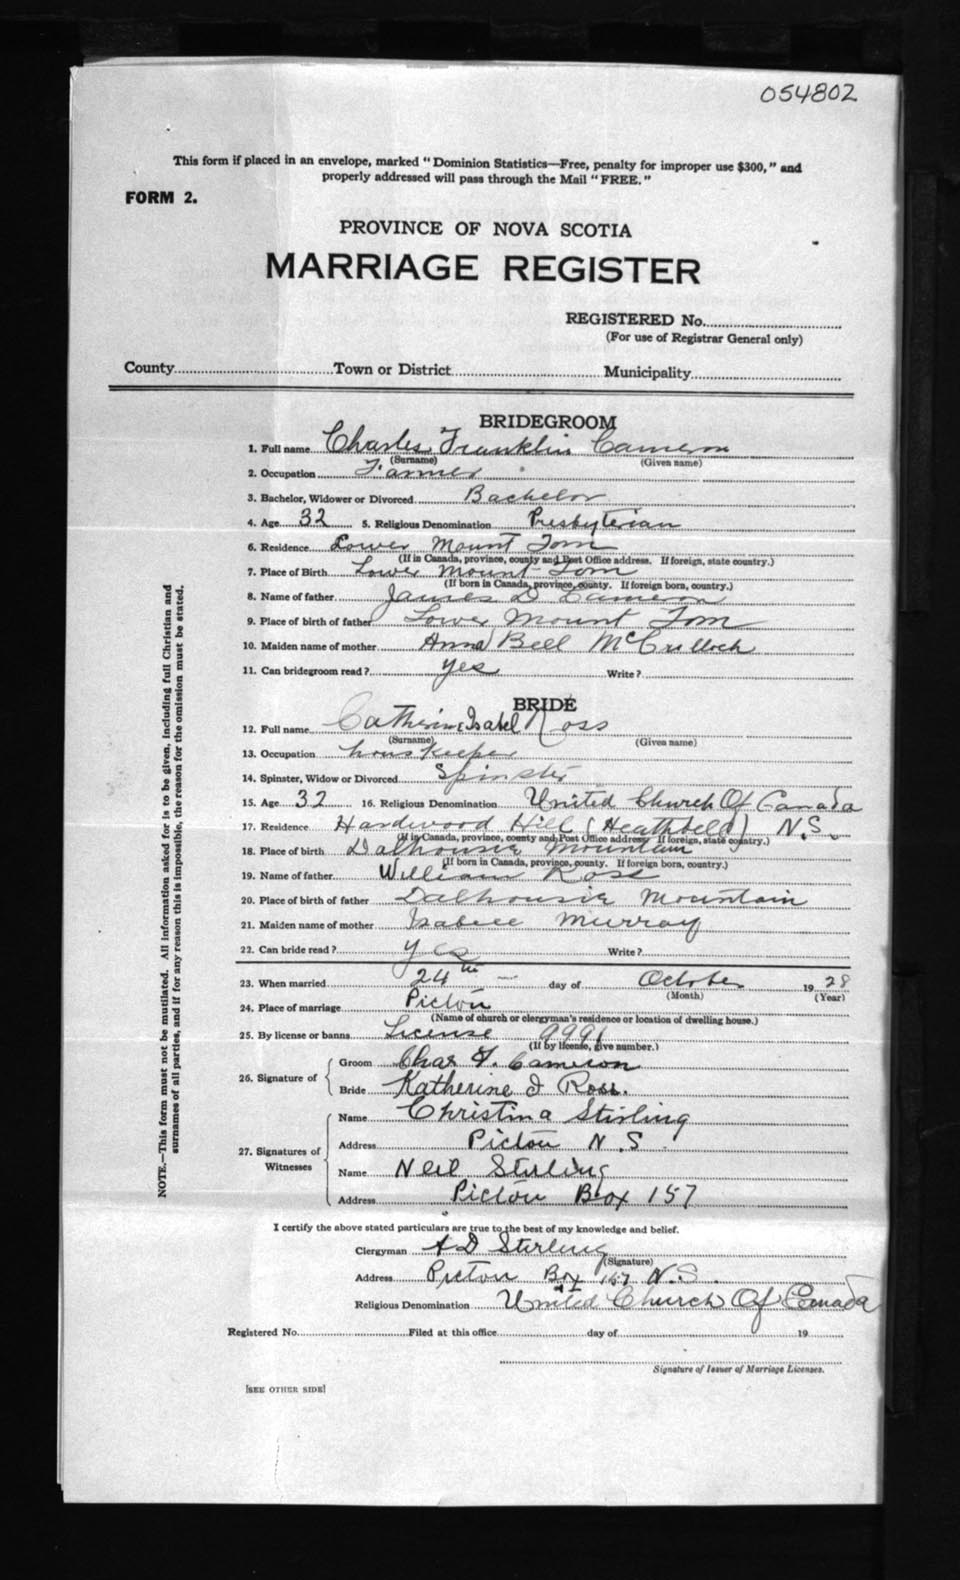 054802
This form if placed in an envelope, marked "Dominion Statistics—Free, penalty for improper use $300," and
properly addressed will pass through the Mail "FREE."
FORM 2.
PROVINCE OF NOVA SCOTIA
MARRIAGE REGISTER
REGISTERED No.
(For use of Registrar General only)
County Town or District Municipality
BRIDEGROOM
1. Full name Charles Franklin Cameron
(Surname) (Given name)
2. Occupation Farmer
3. Bachelor, Widower or Divorced Bachelor
4. Age 32 5. Religious Denomination Presbyterian
6. Residence Lower Mount Tom
(If in Canada, province, county and Post Office address. If foreign, state country.)
7. Place of Birth Lower Mount Tom
(If born in Canada, province, county. If foreign born, country.)
8. Name of father James D Cameron
9. Place of birth of father Lower Mount Tom
10. Maiden name of mother Anna Bell McCulloch
11. Can bridegroom read? yes Write?
BRIDE
12. Full name Catherine Isabel Ross
(Surname) (Given name)
13. Occupation houskeeper
14. Spinster, Widow or Divorced Spinster
15. Age 32 16. Religious Denomination United Church Of Canada
17. Residence Hardwood Hill (Heathbell) N.S.
(If in Canada, province, county and Post Office address. If foreign, state country.)
18. Place of birth Dalhousie Mountain
(If born in Canada, province, county. If foreign born, country.)
19. Name of father William Ross
20. Place of birth of father Dalhousie Mountain
21. Maiden name of mother Isabell Murray
22. Can bride read? yes Write?
23. When married 24th day of October 1928
(Month) (Year)
24. Place of marriage Pictou
(Name of church or clergyman's residence or location of dwelling house.)
25. By license or banns License 9991
(If by license, give number.)
26. Signature of Groom Chas F. Cameron
Bride Katherine I Ross.
27. Signatures of Witnesses Name Christina Stirling
Address Pictou N.S.
Name Neil Stirling
Address Pictou Box 157
I certify the above stated particulars are true to the best of my knowledge and belief.
Clergyman A D Sterling
(Signature)
Address Picton Box 157 N.S.
Religious Denomination United Church Of Canada
Registered No. Filed at this office day of 19
Signature of Issuer of Marriage Licenses.
[SEE OTHER SIDE]
NOTE.—This form must not be mutilated. All information asked for is to be given, including full Christian and
surnames of all parties, and if for any reason this is impossible, the reason for the omission must be stated.